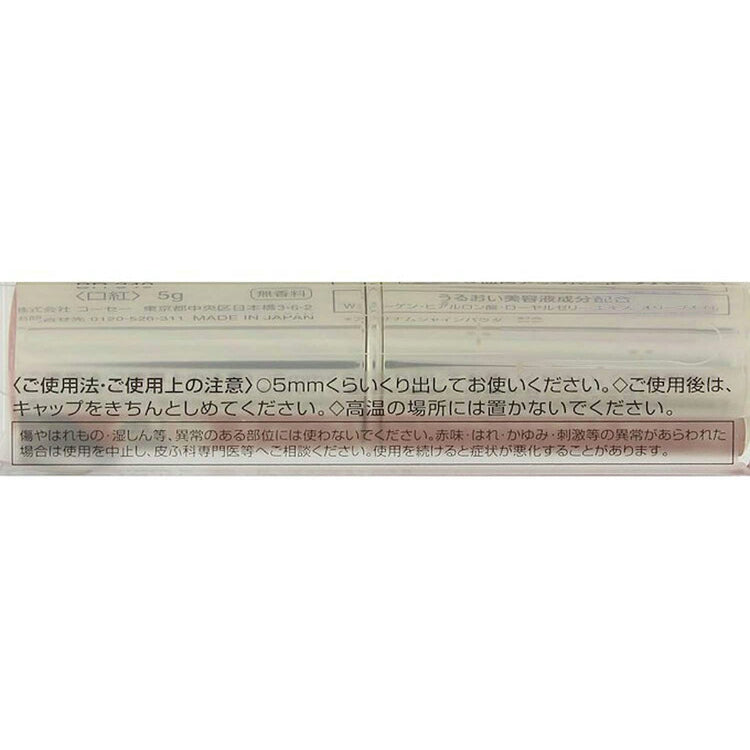 〈口紅〉 5g 無香料
うるおい美容液成分配合
株式会社 コーセー 東京都中央区日本橋3-6-2
お問合せ先 0120-526-311 MADE IN JAPAN
〈ご使用法・ご使用上の注意〉○5mmくらいくり出してお使いください。◇ご使用後は、
キャップをきちんとしめてください。◇高温の場所には置かないでください。
傷やはれもの・湿しん等、異常のある部位には使わないでください。赤味・はれ・かゆみ・刺激等の異常があらわれた
場合は使用を中止し、皮ふ科専門医等へご相談ください。使用を続けると症状が悪化することがあります。